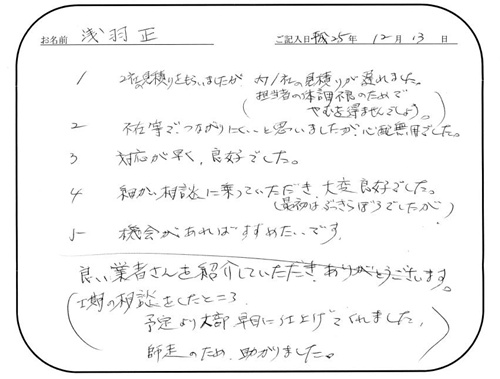 お名前 浅羽 正 ご記入日 平成25年 12月 13日
1 2社見積りをもらいましたが 内1社の見積りが遅れました。
(担当者の体調不良のためで
やむを得ませんでしょう。)
2 不在等でつながりにくいと思いましたが、心配無用でした。
3 対応が早く、良好でした。
4 細かい相談に乗っていただき、大変良好でした。
(最初はぶっきらぼうでしたが)
5 機会があればすすめたいです。
良い業者さんを紹介していただき、ありがとうございます。
(工期の相談をしたところ
予定より大部早目に仕上げてくれました、
師走のため、助かりました。)